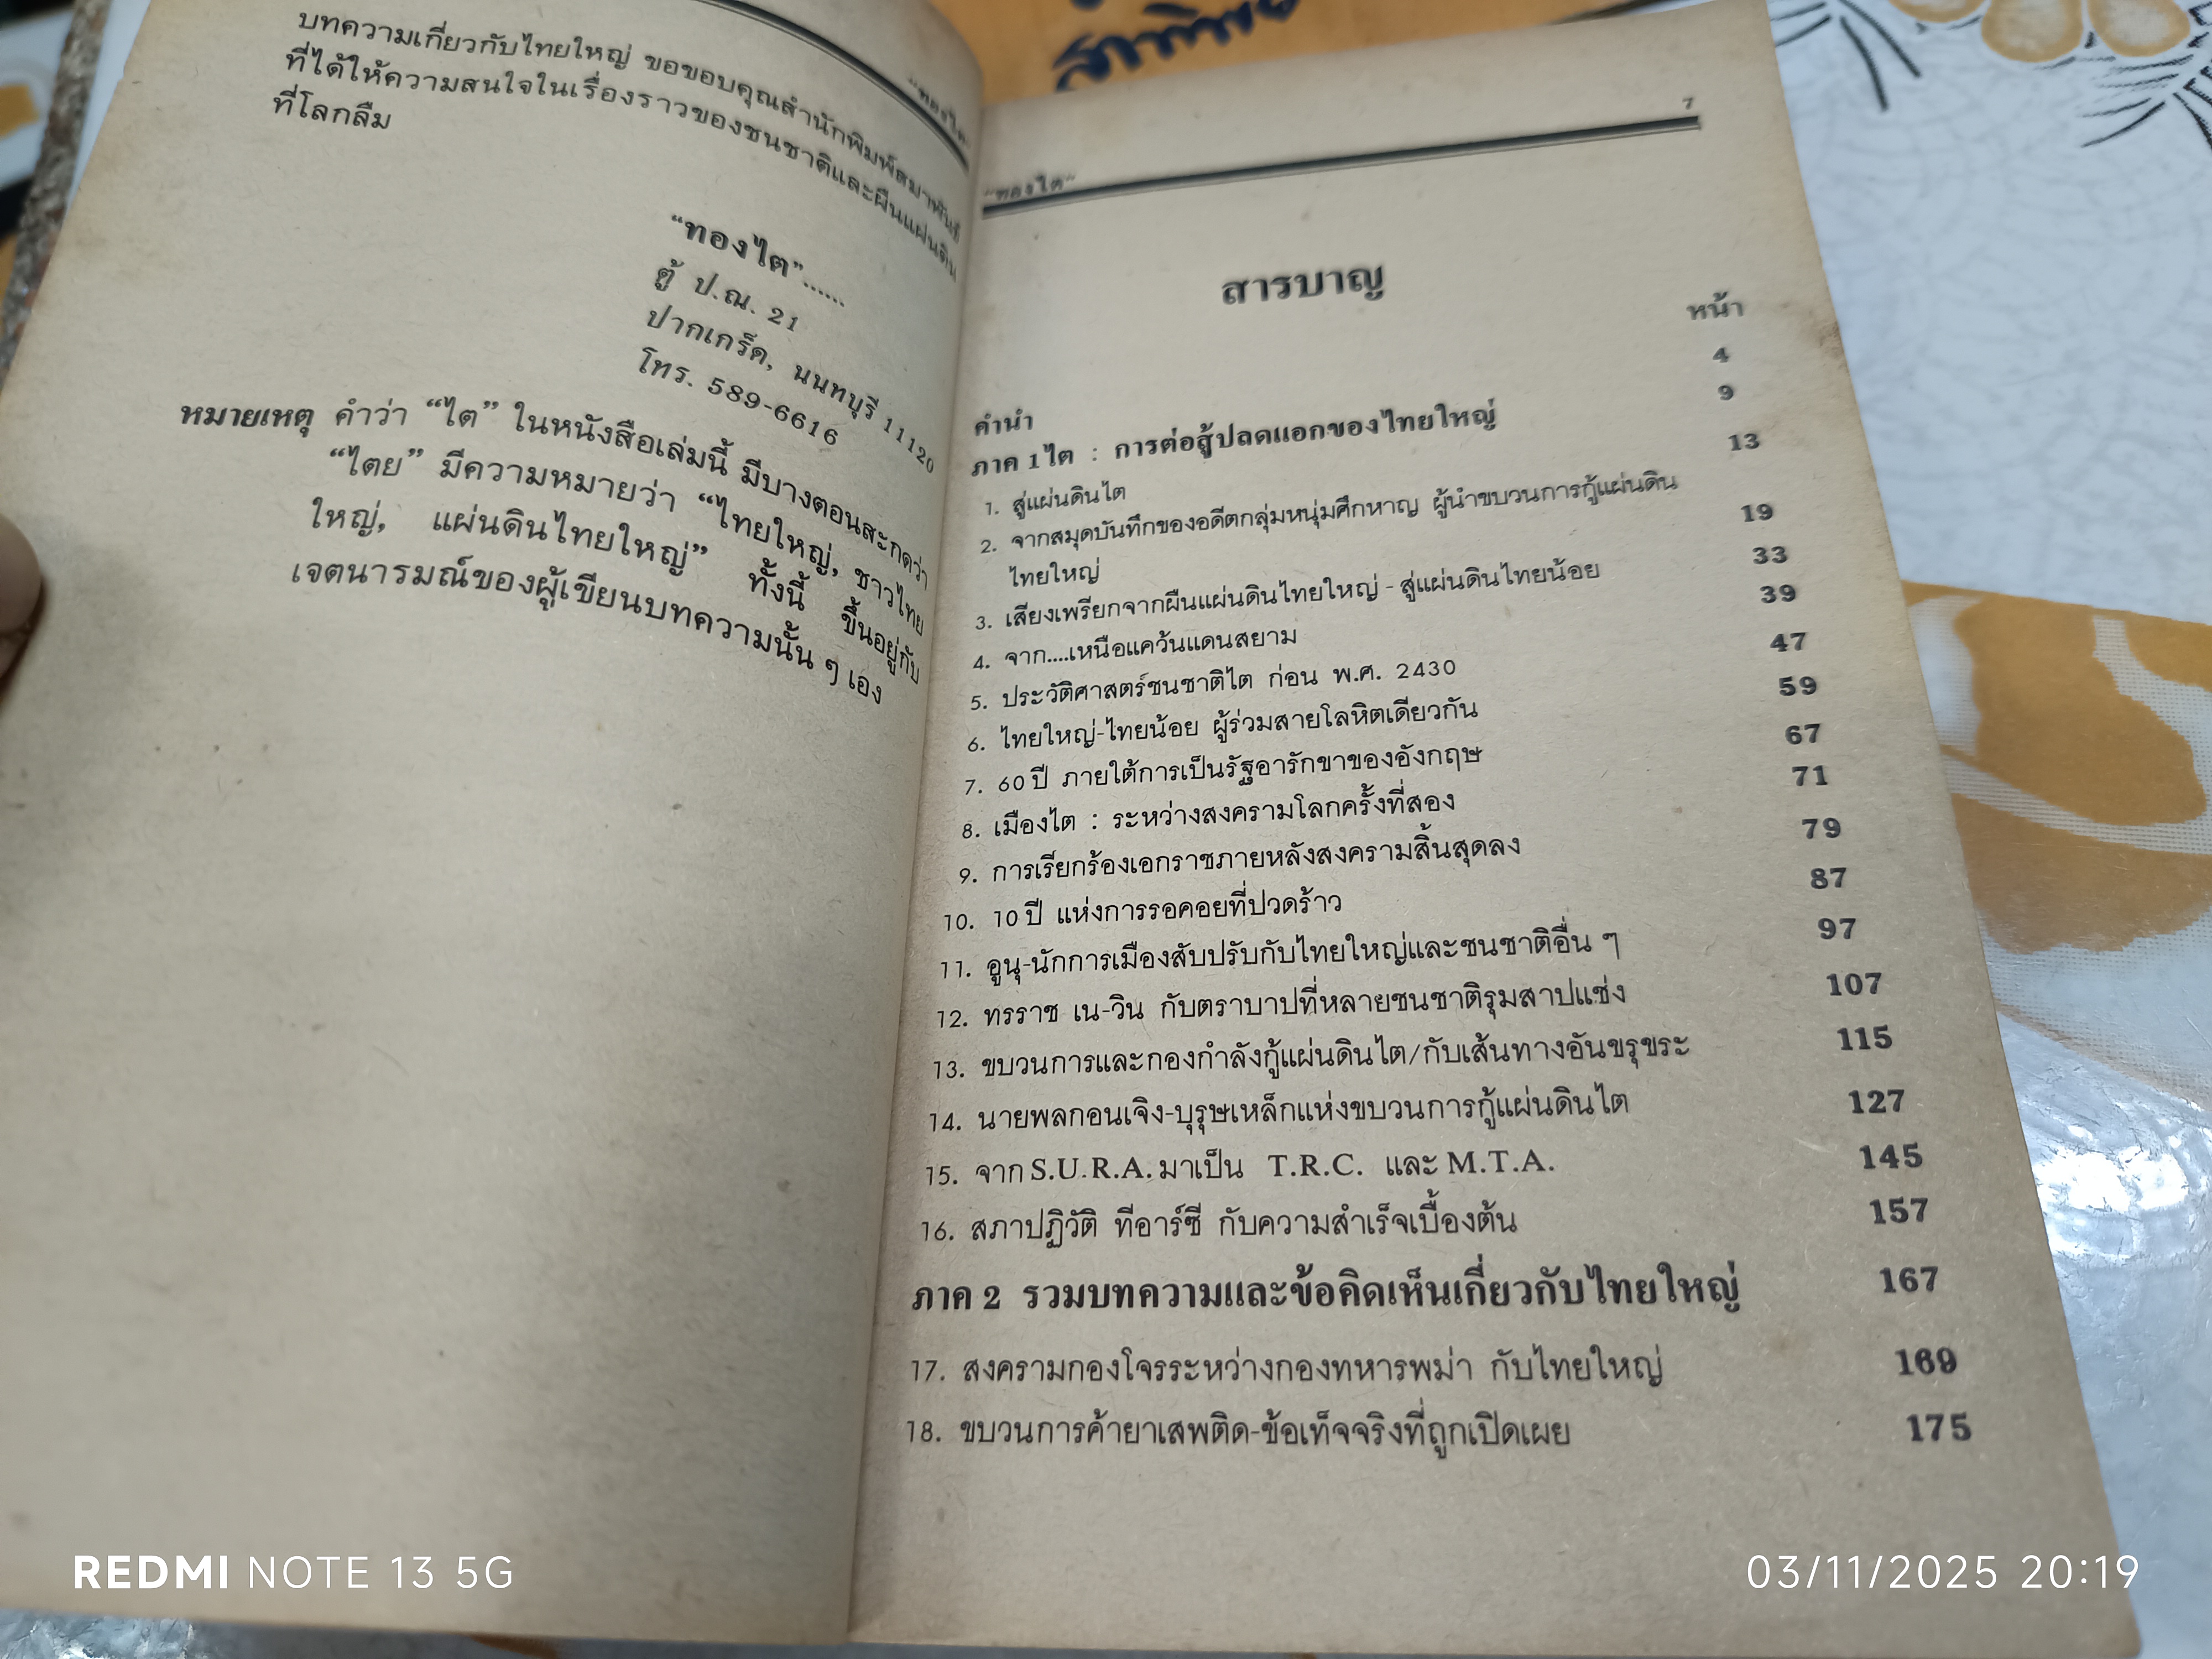 บทความเกี่ยวกับไทยใหญ่ ขอขอบคุณสำนักพิมพ์สมาพันธ์
ที่ได้ให้ความสนใจในเรื่องราวของชนชาติและผืนแผ่นดิน
ที่โลกลืม
“ทองไต”......
ตู้ ป.ณ. 21
ปากเกร็ด, นนทบุรี 11120
โทร. 589-6616
หมายเหตุ คำว่า “ไต” ในหนังสือเล่มนี้ มีบางตอนสะกดว่า
“ไตย” มีความหมายว่า “ไทยใหญ่, ชาวไทย
ใหญ่, แผ่นดินไทยใหญ่” ทั้งนี้ ขึ้นอยู่กับ
เจตนารมณ์ของผู้เขียนบทความนั้น ๆ เอง
“ทองไต”
7
“ทองไต”
สารบาญ
หน้า
คำนำ 4
ภาค 1 ไต : การต่อสู้ปลดแอกของไทยใหญ่ 9
1. สู่แผ่นดินไต 13
2. จากสมุดบันทึกของอดีตกลุ่มหนุ่มศึกหาญ ผู้นำขบวนการกู้แผ่นดิน
ไทยใหญ่ 19
3. เสียงเพรียกจากผืนแผ่นดินไทยใหญ่ - สู่แผ่นดินไทยน้อย 33
4. จาก....เหนือแคว้นแดนสยาม 39
5. ประวัติศาสตร์ชนชาติไต ก่อน พ.ศ. 2430 47
6. ไทยใหญ่-ไทยน้อย ผู้ร่วมสายโลหิตเดียวกัน 59
7. 60 ปี ภายใต้การเป็นรัฐอารักขาของอังกฤษ 67
8. เมืองไต : ระหว่างสงครามโลกครั้งที่สอง 71
9. การเรียกร้องเอกราชภายหลังสงครามสิ้นสุดลง 79
10. 10 ปี แห่งการรอคอยที่ปวดร้าว 87
11. อูนุ-นักการเมืองสับปรับกับไทยใหญ่และชนชาติอื่น ๆ 97
12. ทรราช เน-วิน กับตราบาปที่หลายชนชาติรุมสาปแช่ง 107
13. ขบวนการและกองกำลังกู้แผ่นดินไต/กับเส้นทางอันขรุขระ 115
14. นายพลกอนเจิง-บุรุษเหล็กแห่งขบวนการกู้แผ่นดินไต 127
15. จาก S.U.R.A. มาเป็น T.R.C. และ M.T.A. 145
16. สภาปฏิวัติ ทีอาร์ซี กับความสำเร็จเบื้องต้น 157
ภาค 2 รวมบทความและข้อคิดเห็นเกี่ยวกับไทยใหญ่ 167
17. สงครามกองโจรระหว่างกองทหารพม่า กับไทยใหญ่ 169
18. ขบวนการค้ายาเสพติด-ข้อเท็จจริงที่ถูกเปิดเผย 175
REDMI NOTE 13 5G
03/11/2025 20:19